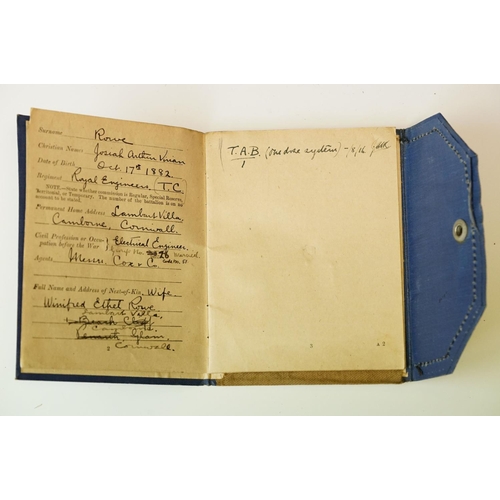 Surname Rowe
Christian Names Josiah Arthur
Date of Birth Oct. 17th 1882.
Regiment Royal Engineers, (T.C.)
NOTE.—State whether commission is Regular, Special Reserve,
Territorial, or Temporary. The number of the battalion is on no
account to be stated.
Permanent Home Address Villa
Camborne, Cornwall.
Civil Profession or Occu- } Electrical Engineer.
pation before the War } Group No. 26 married
Agents Messrs. Cox & Co.
Full Name and Address of Next-of-Kin Wife
Winifred Ethel Rowe
Villa,
Beach
Cornwall.
2
T.A.B. (one dose system)
1
3
A 2